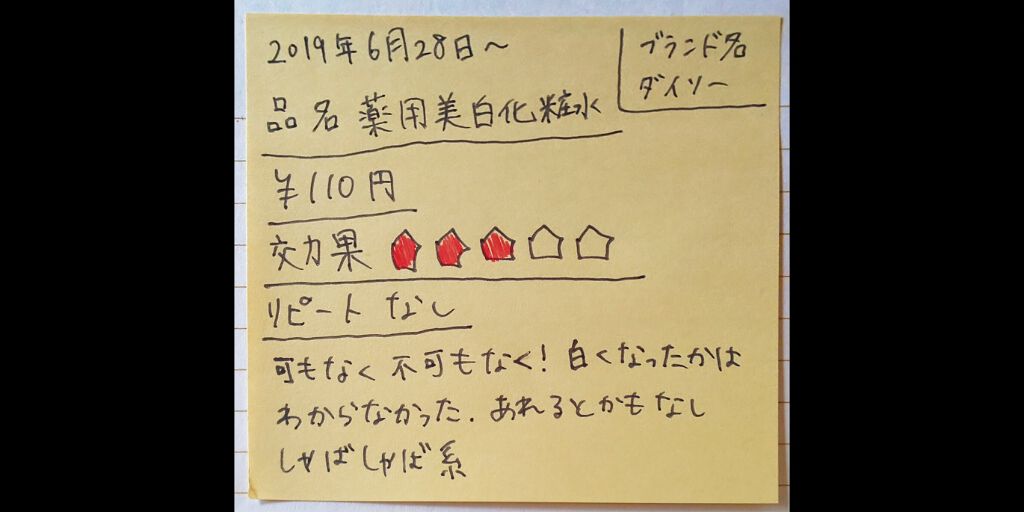 2019年6月28日〜
ブランド名
ダイソー
品名 薬用美白化粧水
¥110円
効果
リピート なし
可もなく不可もなく!白くなったかは
わからなかった.あれるとかもなし
しゃばしゃば系